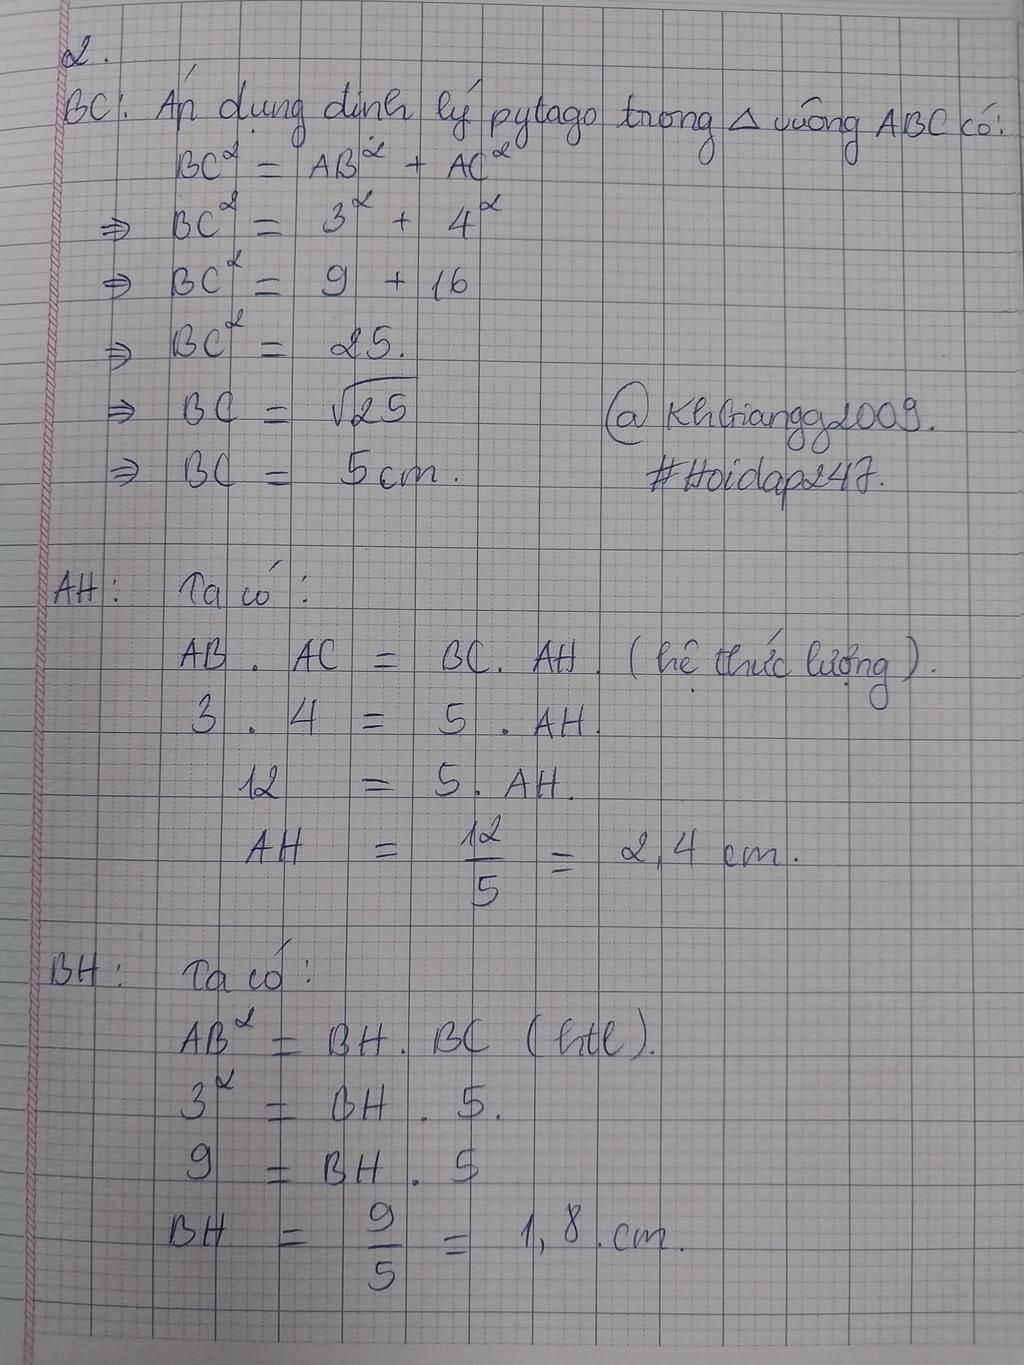 2.
BC: Áp dụng định lý pytago trong △ vuông ABC có:
BC² = AB² + AC²
⇒ BC² = 3² + 4²
⇒ BC² = 9 + 16
⇒ BC² = 25.
⇒ BC = √25
⇒ BC = 5cm.
@KhGiangg2009.
#Hoidap247.
AH: Ta có:
AB . AC = BC. AH. (hệ thức lượng).
3 . 4 = 5 . AH.
12 = 5. AH.
AH = 12/5 = 2,4 cm.
BH: Ta có:
AB² = BH. BC (htl).
3² = BH . 5.
9 = BH . 5
BH = 9/5 = 1,8 .cm.